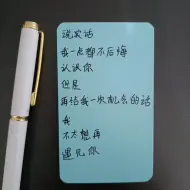 说实话
我一点都不后悔
认识你
但是
再给我一次机会的话
我
不太想再
遇见你